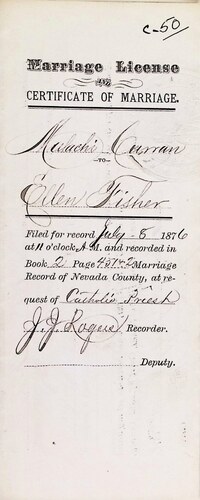 C-50
Marriage License
OR
CERTIFICATE OF MARRIAGE.
Malachi Curran
-TO-
Ellen Fisher
Filed for record July - 8 1876
at 11 o'clock, A.M. and recorded in
Book 2 Page 451 Marriage
Record of Nevada County, at re-
quest of Catholic Priest
J. J. Rogers Recorder.
Deputy.